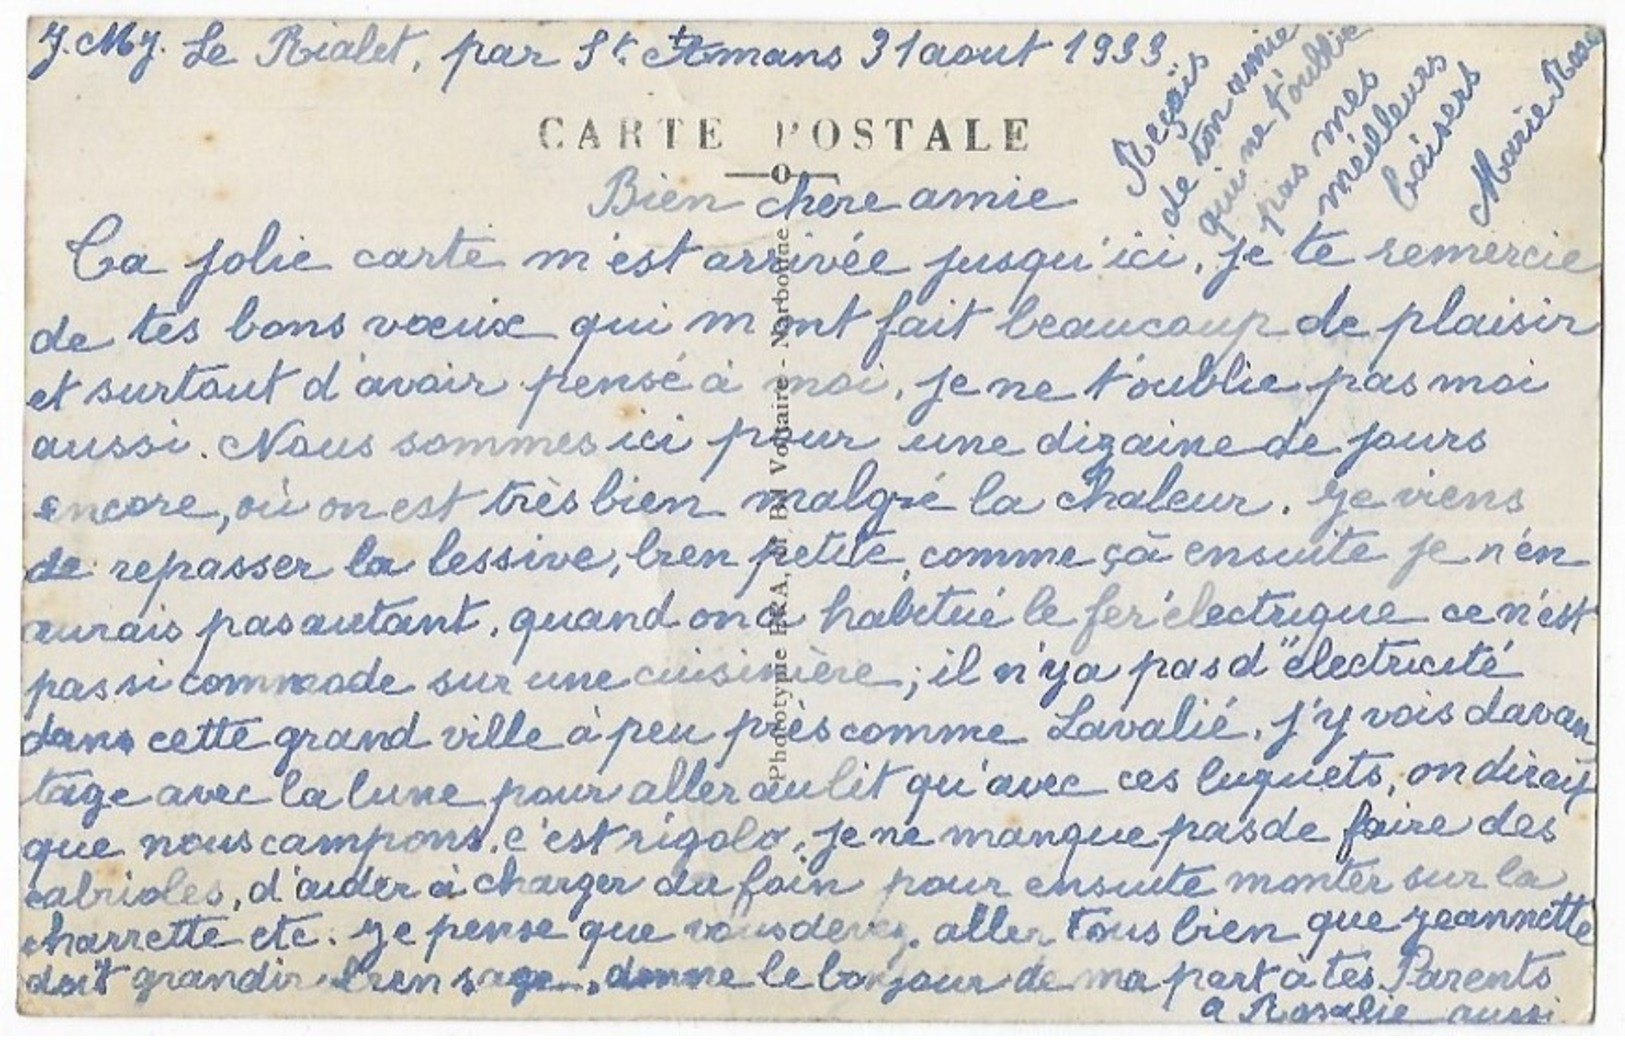 J. M. J. Le Rialet, par St. Amans 31 aout 1933
CARTE POSTALE
Bien chère amie
Ta jolie carte m'est arrivée jusqu'ici, je te remercie
de tes bons vœux qui m'ont fait beaucoup de plaisir
et surtout d'avoir pensé à moi, je ne t'oublie pas moi
aussi. Nous sommes ici pour une dizaine de jours
encore, où on est très bien malgré la chaleur. Je viens
de repasser la lessive, bien petite, comme çà ensuite je n'en
aurais pas autant, quand on a habitué le fer électrique ce n'est
pas si commode sur une cuisinière ; il n'y a pas d'électricité
dans cette grand ville à peu près comme Lavalié. J'y vois davan
tage avec la lune pour aller au lit qu'avec ces luquets, on dirait
que nous campons, c'est rigolo, je ne manque pas de faire des
cabrioles, d'aider à charger du foin pour ensuite monter sur la
charrette etc. Je pense que vous devez aller tous bien que Jeannette
doit grandir bien sage, donne le bonjour de ma part à tes Parents
a Rosalie aussi
Reçois
de ton amie
qui ne t'oublie
pas mes
meilleurs
baisers
Marie Rose
Phototype Bd Voltaire - Narbonne